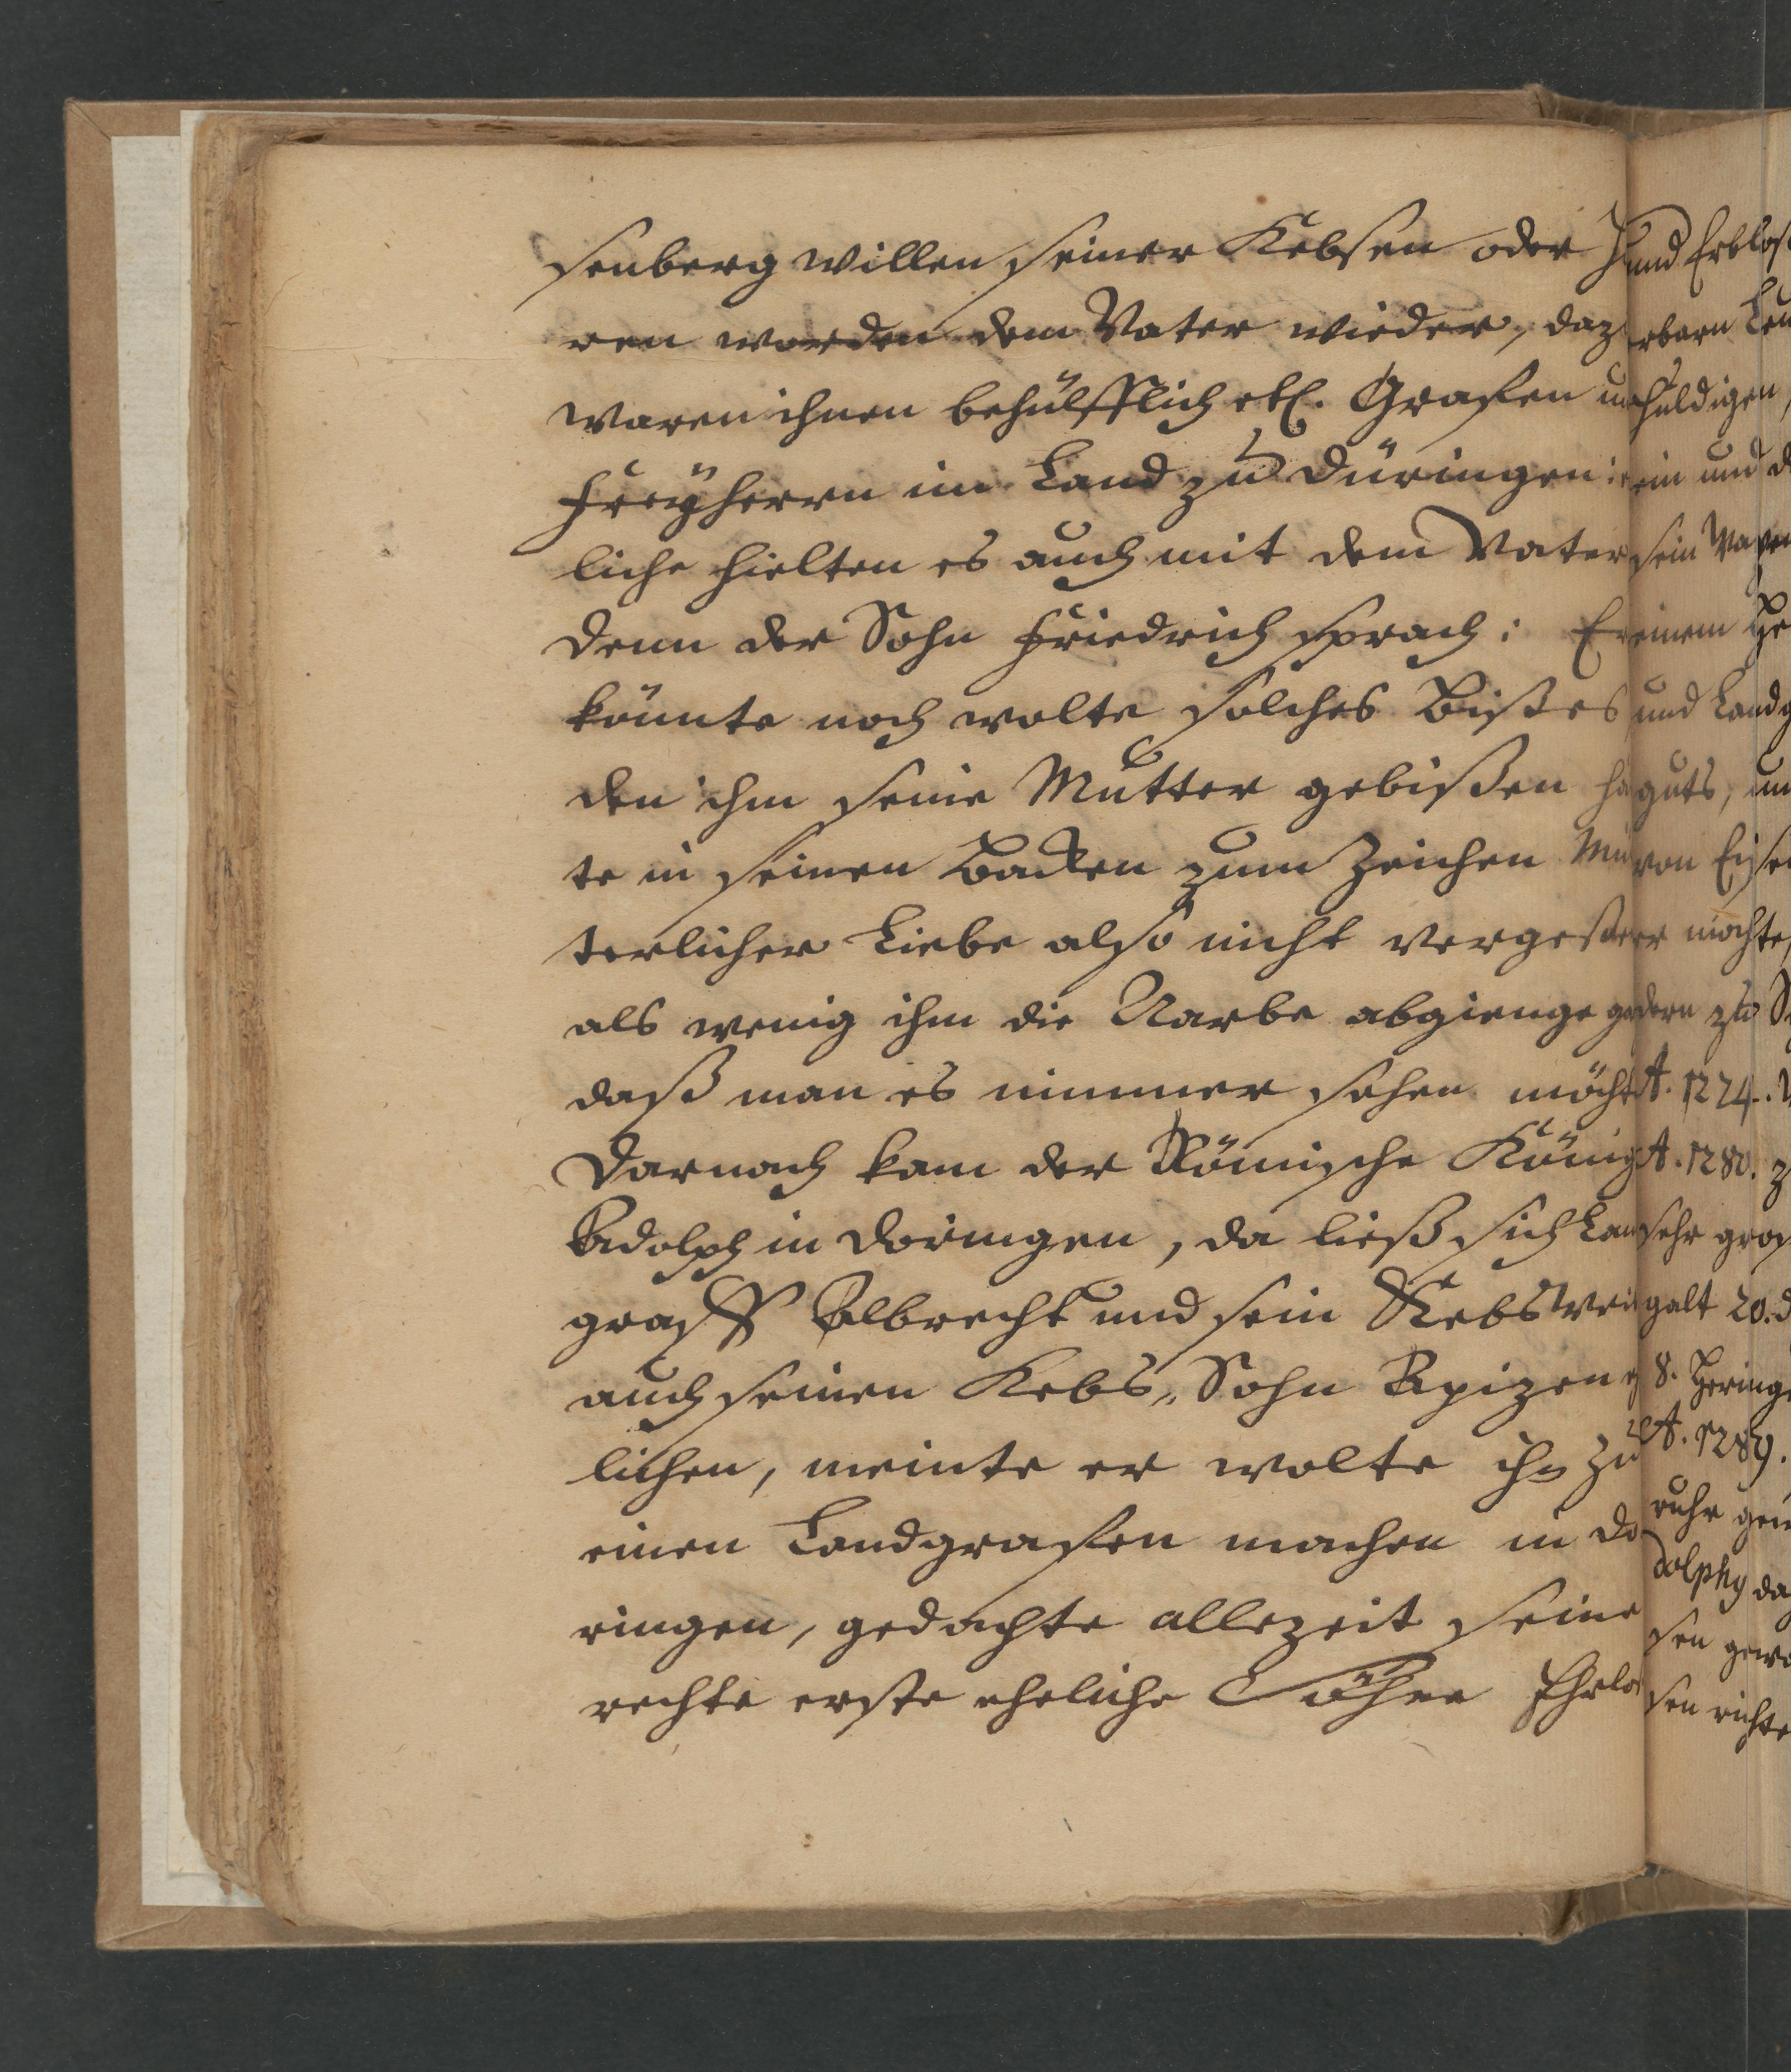 senberg willen seiner Kebsen oder
ren worden dem Vater wieder, daz
waren ihnen behülfflich etl. Grafen un
Freyherrn im Land zu Düringen:
liche hielten es auch mit dem Vater
denn der Sohn Friedrich sprach: Er
könnte noch wolte solches Bißes
den ihm seine Mutter gebißen hä
te in seinen Backen zum Zeichen Mü
terlicher Liebe also nicht vergeßen
als wenig ihm die Narbe abgienge
daß man es nimmer sehen möcht
Darnach kam der Römische König
Adolph in Doringen, da ließ sich Lan
graff Albrecht und sein Kebsweib
auch seinen Kebs„ Sohn Apizen
lichen, meinte er wolte ihn zu
einen Landgrafen machen in Do
ringen, gedachte allezeit seine
rechte erste eheliche Söhne Ehrlos
und Erblos
rbarn Leu
huldigen,
ein und d
sein Wapen
einem He
und Landg
guts, un
von Eisen
er möchte,
dern zu
A. 1274.
A. 1280. z
sehr groß
galt 20. d
8. Heringe
A. 1289.
ruhr
dolphy da
sen gewe
sen richte